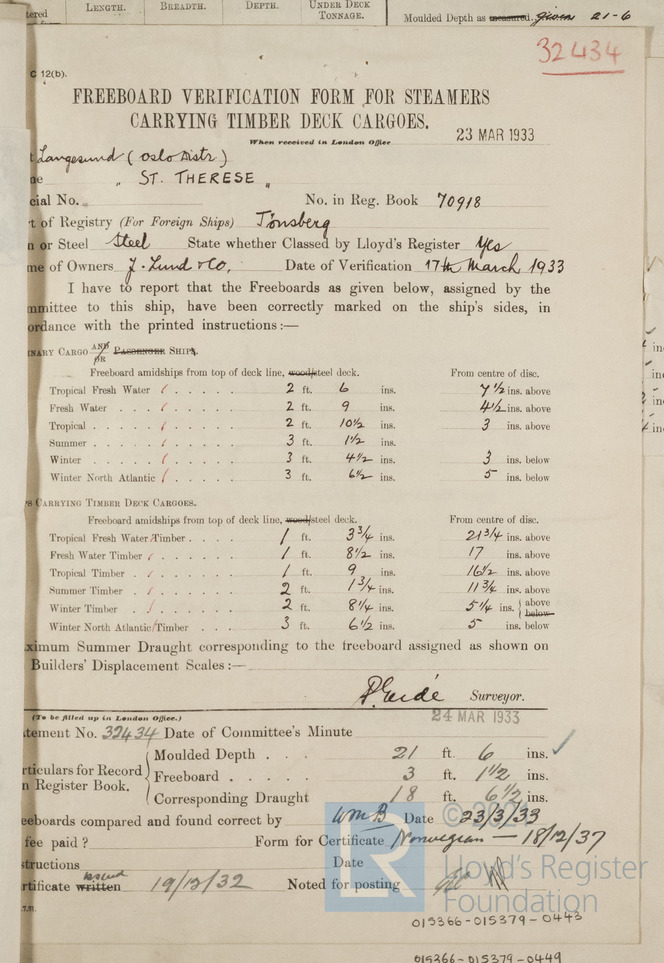 tered LENGTH. BREADTH. DEPTH. UNDER DECK TONNAGE. Moulded Depth as measured. given 21-6
32434
C 12(b).
FREEBOARD VERIFICATION FORM FOR STEAMERS
CARRYING TIMBER DECK CARGOES.
23 MAR 1933
When received in London Office
t Langesund (Oslo Distr)
ne „ ST. THERESE „
cial No. No. in Reg. Book 70918
t of Registry (For Foreign Ships) Tönsberg
n or Steel Steel State whether Classed by Lloyd's Register Yes
me of Owners J. Lund & Co. Date of Verification 17th March, 1933
I have to report that the Freeboards as given below, assigned by the
mmittee to this ship, have been correctly marked on the ship's sides, in
ordance with the printed instructions:—
INARY CARGO AND OR PASSENGER SHIPS.
Freeboard amidships from top of deck line, wood/steel deck. From centre of disc.
Tropical Fresh Water 2 ft. 6 ins. 7½ ins. above
Fresh Water 2 ft. 9 ins. 4½ ins. above
Tropical 2 ft. 10½ ins. 3 ins. above
Summer 3 ft. 1½ ins.
Winter 3 ft. 4½ ins. 3 ins. below
Winter North Atlantic 3 ft. 6½ ins. 5 ins. below
S CARRYING TIMBER DECK CARGOES.
Freeboard amidships from top of deck line, wood/steel deck. From centre of disc.
Tropical Fresh Water Timber 1 ft. 3¾ ins. 21¾ ins. above
Fresh Water Timber 1 ft. 8½ ins. 17 ins. above
Tropical Timber 1 ft. 9 ins. 16½ ins. above
Summer Timber 2 ft. 1¾ ins. 11¾ ins. above
Winter Timber 2 ft. 8¼ ins. 5¼ ins. above below
Winter North Atlantic Timber 3 ft. 6½ ins. 5 ins. below
ximum Summer Draught corresponding to the freeboard assigned as shown on
Builders' Displacement Scales:—
Surveyor.
(To be filled up in London Office.) 24 MAR 1933
tement No. 32434 Date of Committee's Minute
Moulded Depth 21 ft. 6 ins.
rticulars for Record
n Register Book.
Freeboard 3 ft. 1½ ins.
Corresponding Draught 18 ft. 6½ ins.
eeboards compared and found correct by WmB Date 23/3/33
fee paid? Form for Certificate Norwegian — 18/12/37
structions Date
rtificate written issued 19/12/32 Noted for posting
7,31.
© 2021
Lloyd's Register
Foundation
LR
015366-015379-0443
015366-015379-0449
in
in
in
in